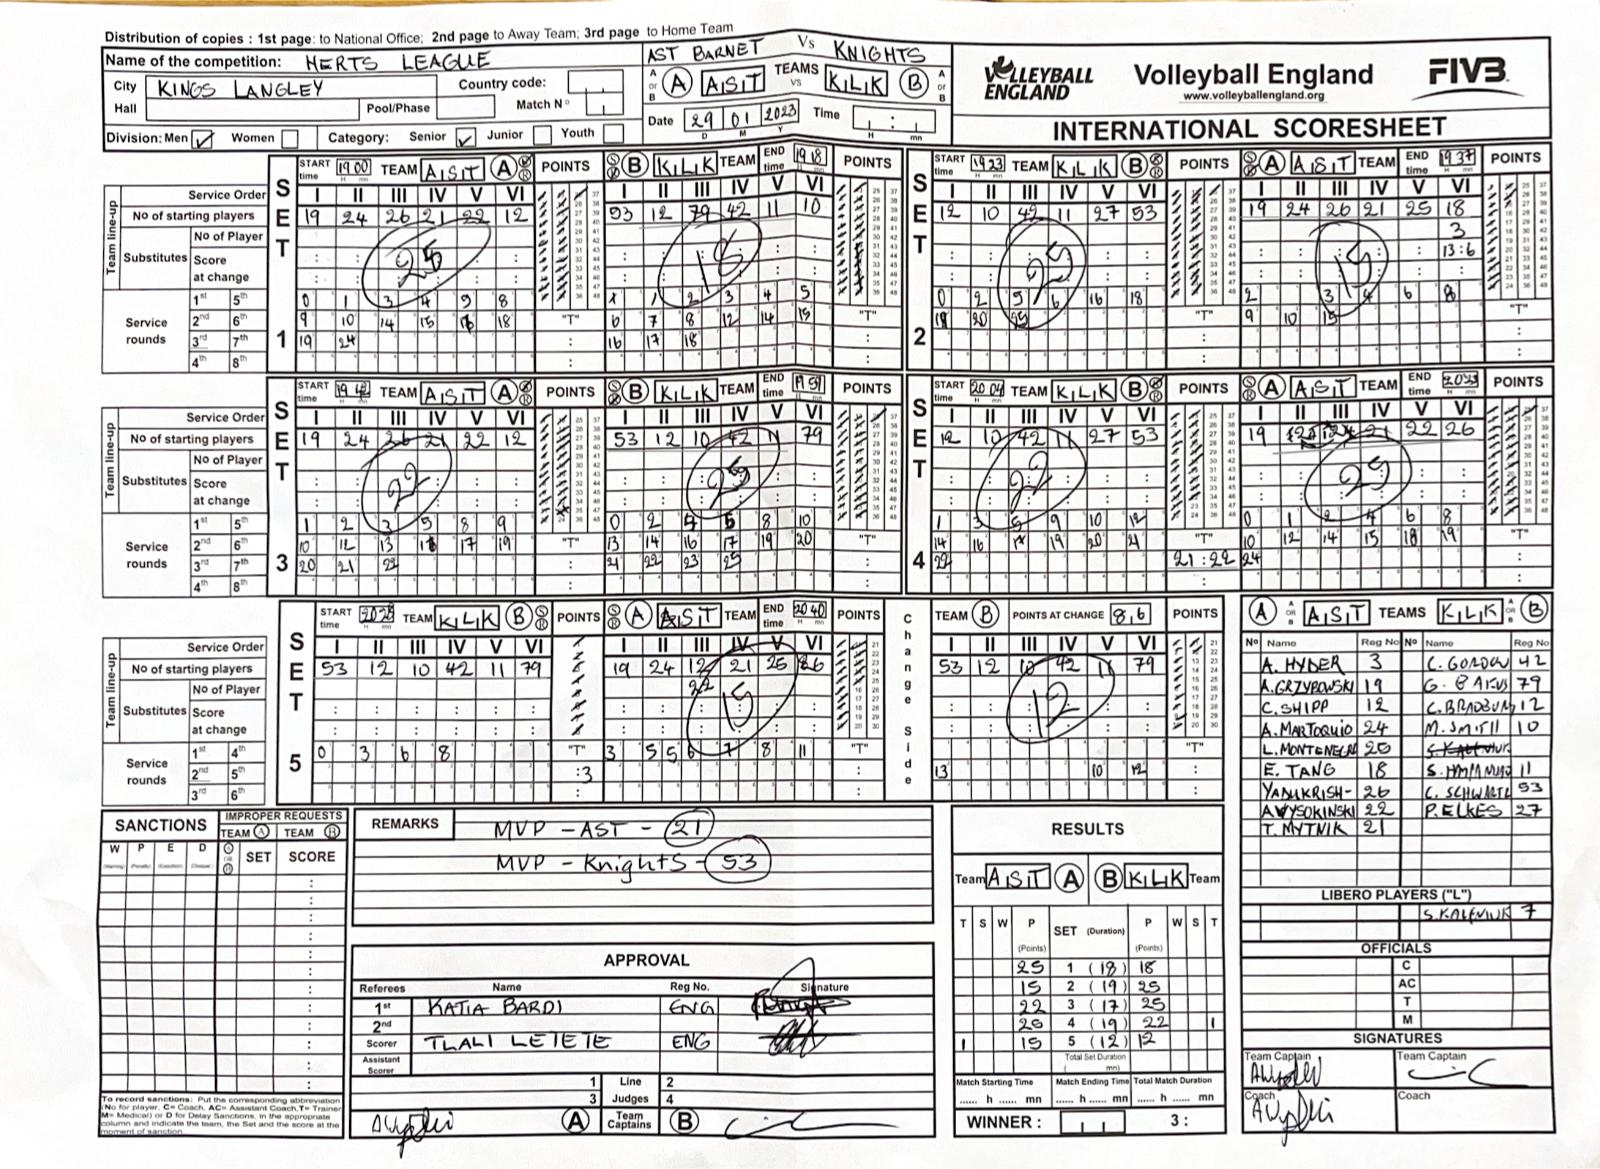 Distribution of copies : 1st page: to National Office; 2nd page to Away Team; 3rd page to Home Team
Name of the competition: HERTS LEAGUE
AST BARNET Vs KNIGHTS
City KINGS LANGLEY Country code:
Hall Pool/Phase Match Nº
A or B A AST TEAMS vs KLK B A or B
Date 29 01 2023 Time
D M Y H mn
Division: Men ✓ Women Category: Senior ✓ Junior Youth
VOLLEYBALL ENGLAND
Volleyball England
www.volleyballengland.org
FIVB
INTERNATIONAL SCORESHEET
SET 1
START time 19 00 TEAM AST A POINTS B KLK TEAM END time 19 18 POINTS
Service Order I II III IV V VI I II III IV V VI
No of starting players 19 24 26 21 22 12 53 12 79 42 11 10
Team line-up
Substitutes
No of Player
Score at change
25 18
Service rounds
1st 5th 0 1 3 4 9 8 X 1 2 3 4 5
2nd 6th 9 10 14 15 16 18 "T" 6 7 8 12 14 15 "T"
3rd 7th 19 24 16 17 18
4th 8th
SET 2
START time 19 23 TEAM KLK B POINTS A AST TEAM END time 19 37 POINTS
I II III IV V VI I II III IV V VI
12 10 42 11 27 53 19 24 26 21 25 18
3
13:6
25 15
0 2 5 6 16 18 2 3 4 6 8
18 20 25 "T" 9 10 15 "T"
SET 3
START time 19 42 TEAM AST A POINTS B KLK TEAM END time 19 59 POINTS
Service Order I II III IV V VI I II III IV V VI
No of starting players 19 24 26 21 22 12 53 12 10 42 11 79
Team line-up
Substitutes
No of Player
Score at change
22 25
Service rounds
1st 5th 1 2 3 5 8 9 0 2 4 5 8 10
2nd 6th 10 12 13 16 17 19 "T" 13 14 16 17 19 20 "T"
3rd 7th 20 21 22 21 22 23 25
4th 8th
SET 4
START time 20 04 TEAM KLK B POINTS A AST TEAM END time 2023 POINTS
I II III IV V VI I II III IV V VI
12 10 42 11 27 53 19 21 22 26
22 25
1 3 5 9 10 12 0 1 2 4 6 8
14 16 19 20 21 "T" 10 12 14 15 18 19 "T"
22 21:22 24
SET 5
START time 2028 TEAM KLK B POINTS A AST TEAM END time 20 40 POINTS
Service Order I II III IV V VI I II III IV V VI
No of starting players 53 12 10 42 11 79 19 24 12 21 25 26
22
Team line-up
Substitutes
No of Player
Score at change
15
Service rounds
1st 4th 0 3 6 8 "T" 3 5 5 6 7 8 11 "T"
2nd 5th :3
3rd 6th
Change Side
TEAM B POINTS AT CHANGE 8,6 POINTS
I II III IV V VI
53 12 10 42 11 79
12
"T"
13 10 12
A A OR B AST TEAMS KLK A OR B B
Nº Name Reg No Nº Name Reg No
A. HYDER 3 C. GORDON 42
A.GRZYBOWSKI 19 79
C. SHIPP 12 12
A. MARTOQUIO 24 M. SMITH 10
L. MONTENEGRO 25
E. TANG 18 11
YADUKRISH- 26 53
A WYSOKINSKI 22 P. ELKES 27
T. MYTNIK 21
LIBERO PLAYERS ("L")
7
OFFICIALS
C
AC
T
M
SIGNATURES
Team Captain Team Captain
Coach Coach
SANCTIONS
IMPROPER REQUESTS
TEAM A TEAM B
W P E D A OR B SET SCORE
To record sanctions: Put the corresponding abbreviation
(No for player, C= Coach, AC= Assistant Coach,T= Trainer
M= Medical) or D for Delay Sanctions, in the appropriate
column and indicate the team, the Set and the score at the
moment of sanction.
REMARKS MVP - AST - 21
MVP - Knights - 53
APPROVAL
Referees Name Reg No. Signature
1st KATIA BARDI ENG
2nd
Scorer TLALI LETETE ENG
Assistant Scorer
1 Line 2
3 Judges 4
A Team Captains B
RESULTS
Team AST A B KLK Team
T S W P SET (Duration) P W S T
(Points) (Points)
25 1 (18) 18
15 2 (19) 25
22 3 (17) 25
25 4 (19) 22 1
1 15 5 (12) 12
Total Set Duration
mn)
Match Starting Time Match Ending Time Total Match Duration
...... h ...... mn ...... h ...... mn ...... h ...... mn
WINNER : 3 :